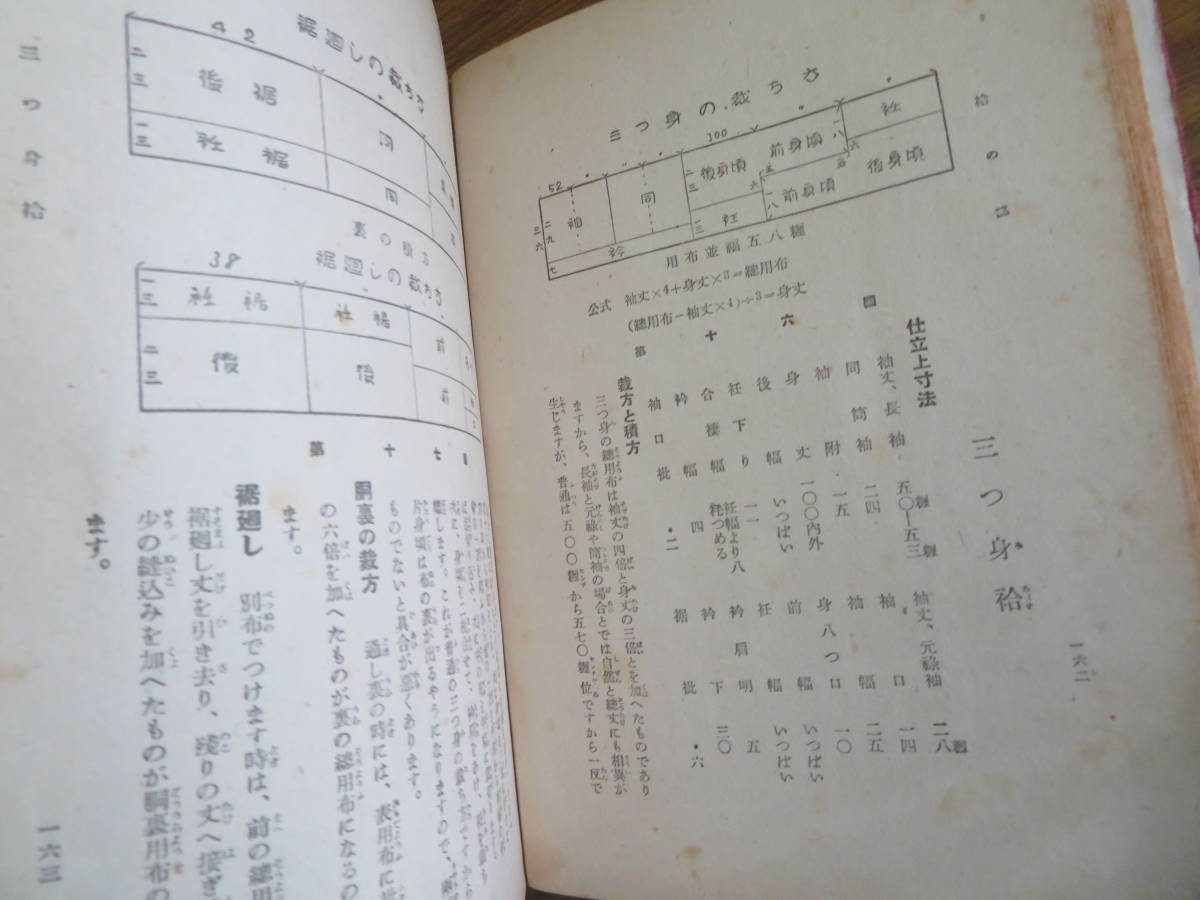 袷の部
一六二
三つ身の裁ち方
52
100
袖
同
後身頃
前身頃
衽
衽
前身頃
後身頃
衿
用布並幅五八糎
公式 袖丈×4+身丈×3=總用布
(總用布-袖丈×4)÷3=身丈
第十六圖
三つ身袷
仕立上寸法
袖丈、長袖 五〇―五三糎
同筒袖 二四
袖附 一五
身丈 一〇〇內外
後幅 いつぱい
衽下り 一一
合褄幅 衽幅より八粍つめる
衿幅 四
袖口袘 ・二
袖丈、元祿袖 二八糎
袖口 一四
袖幅 二五
身八つ口 一〇
前幅 いつぱい
衽幅 いつぱい
衿肩明 五
衿下 三〇
裾袘 ・六
裁方と積方
三つ身の總用布は袖丈の四倍と身丈の三倍とを加へたものであり
ますから、長袖と元祿や筒袖の場合とでは自然と總丈にも相異が
生じますが、普通は五〇〇糎から五七〇糎位ですから一反で
三つ身袷
一六三
裾廻しの裁ち方
42
後裾
同
衽裾
同
裏の積方
裾廻しの裁ち方
38
衽裾
衽裾
前
後
後
前
第十七圖
片身頃は私の裏が出るやうになりますので、
ものでないと具合が悪くあります。
胴裏の裁方 通し裏の時には、表用布に
の六倍を加へたものが裏の總用布になるの
ます。
裾廻し 別布でつけます時は、前の總用
裾廻し丈を引き去り、殘りの丈へ接ぎ
少の縫込みを加へたものが胴裏用布の
ます。